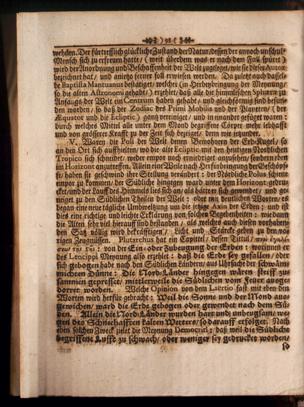 wehden. Der fürtrefflich glückliche Zustand der Natur, dessen der annoch unschul-
Mensch sich zu erfreuen hatte, (weit überdem was er nach dem Fall spürte)
wird der Anordnung und Beschaffenheit der Welt zugelegt, wie sie dieser
bezeichnet hat, und anietzo ferner soll erwiesen werden. Da zuletzt auch
Baptista Mantuanus bestätiget, welcher (in Herbeybringung der Meynung,
so die alten Astronomi gehabt) erzehlet, daß alle die himmlischen Sphæren zu
Anfangs der Welt ein Centrum haben gehabt, und gleichförmig sind befun-
den worden, so daß der Zodiac des Primi Mobilis und der Planeten, (der
Æquator und die Ecliptic) gantz vereiniget, und in einander gefüget waren:
durch welches Mittel alle unter dem Mond begriffene Cörper mehr lebhafft
und von grösserer Krafft zu der Zeit sich bezeiget, denn wir ietzunder.
V. Waren die Poli der Welt denen Bewohnern der Erd-Kugel, so
an die Ort sich auffhielten, wo die alte Ecliptic mit den heutigen Nordlichen
Tropico sich schneidet, weder empor noch erniedriget anzusehen, sondern eben
im Horizont anzutreffen. Allein eine Weile nach Herfürbringung der Geschöpf-
fe, haben sie geschwind ihre Stellung verändert: der Nordliche Polus
empor zu kommen, der Südliche hingegen ward unter dem Horizont
ckt; und der Lauff des Himmels ließ sich an als hätten sich gewendet, und
neiget zu den Südlichen Theilen der Welt: oder mit deutlichen Worten, es
began eine neue tägliche Umdrehung um die ietzige Axin der Erden; und ist
dies eine richtige und leichte Erklärung von solchen Begebenheiten, wie dann
die Alten sehr viel hierauff sind bestanden, als welches auch diesen vorhaben-
den Satz völlig wird bekräfftigen, Licht und Stärcke geben zu den
rigen Zeugnissen. Plutarchus hat ein Capittel, dessen Titul,
von der Ein- oder Zubeugung der Erden: worinnen er
des Leucippi Meynung also erzehlet: daß die Erde sey gefallen, oder
sich gebogen habe nach den Südlichen Ländern, aus Ursache der schwäm-
michten Dünne: Die Nord-Länder hingegen wären steiff zu-
sammen gepresset, mittlerweile die Südlichen vom Feuer ausge-
dorret worden. Welche Opinion von dem Laërtio fast mit eben den
Worten wird herfür gebracht: Weil die Sonne und der Mond ab-
gewichen, ward die Erde gebogen oder gewendet nach dem Sü-
den. Allein die Nord-Länder wurden hart und unbeugsam, we-
gen des Schneehafften kalten Wetters, so darauff erfolget. Nach
eben solchen Zweck zielet die Meynung Democrati: daß weil die Südliche
begriffene Lufft zu schwach, oder weniger sey gedrucket worden,
so